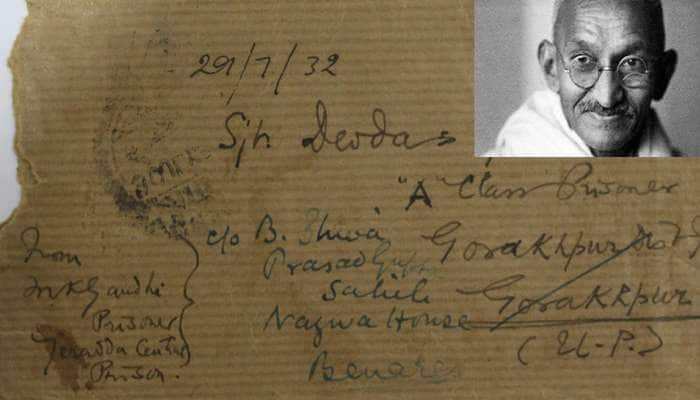 29/7/32
Sjt. Devdas
"A" Class Prisoner
Gorakhpur
Gorakhpur
(U-P.)
c/o B. Shiva
Prasad Gupta
Sahib
Nagwa House
Benares
From
M K Gandhi
Prisoner
Yeravda Central
Prison.